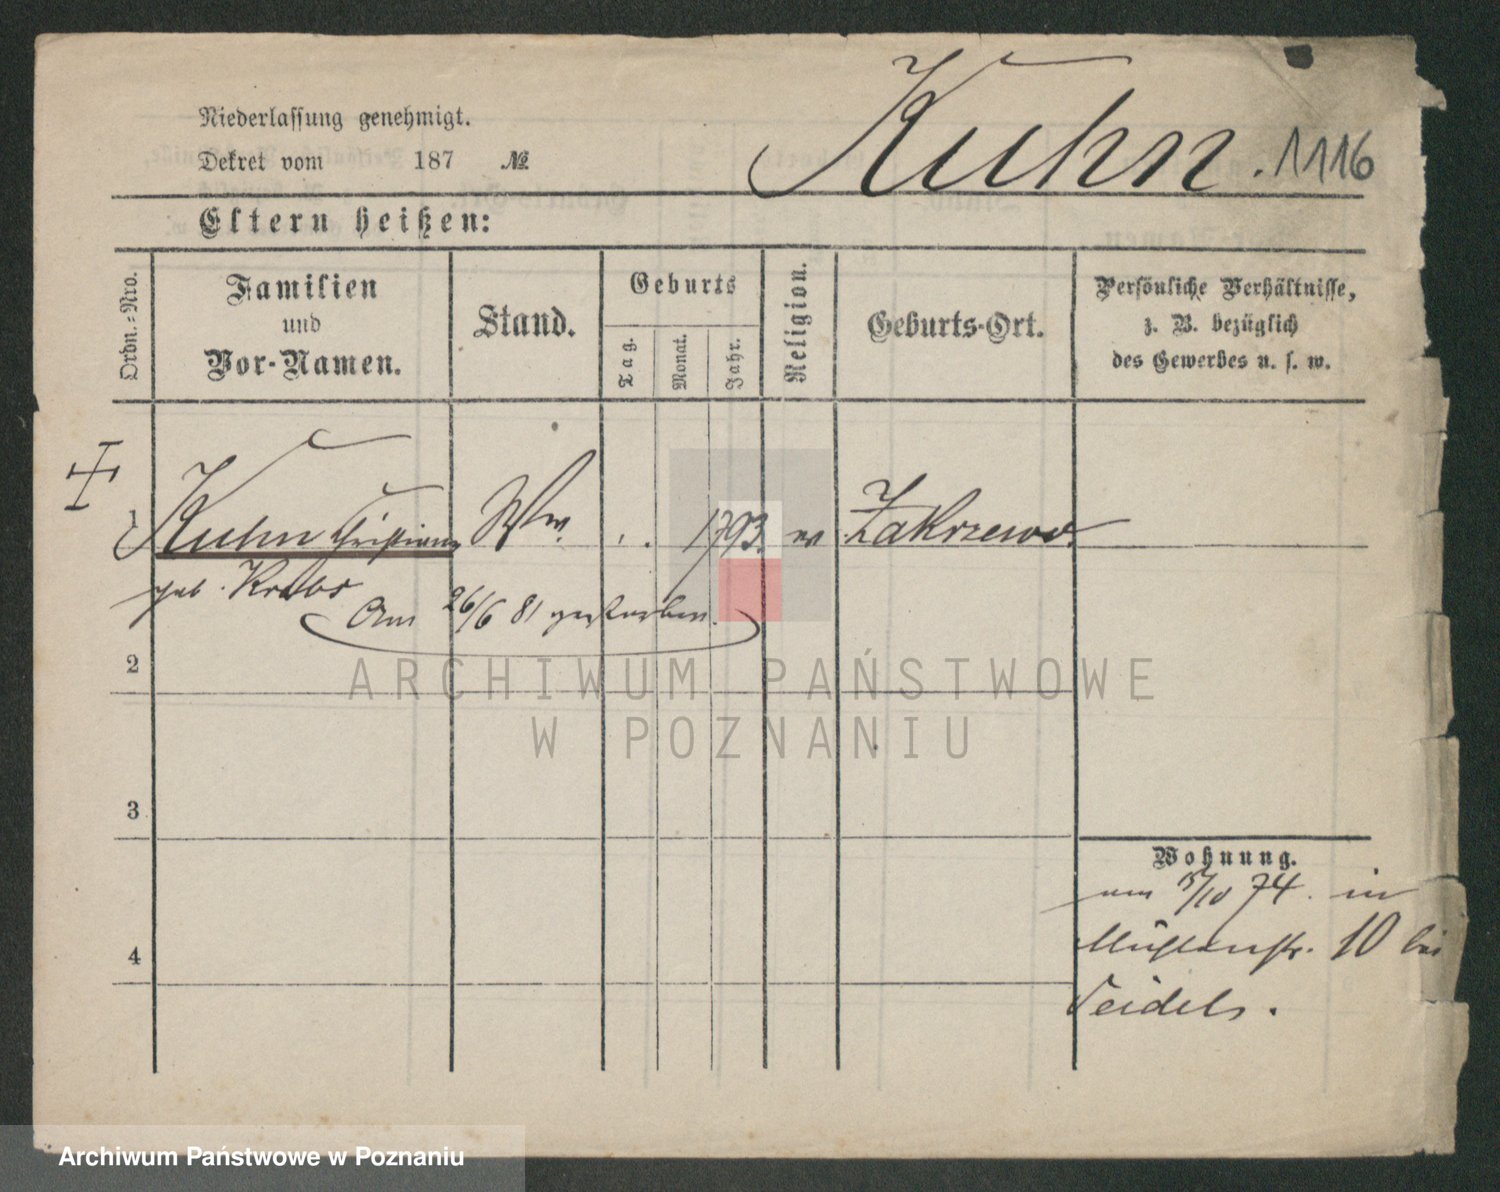 Kuhn. 1116
Niederlassung genehmigt.
Dekret vom 187 №
Eltern heißen:
Ordn.-Nro.
Familien
und
Vor-Namen.
Stand.
Geburts
Tag.
Monat.
Jahr.
Religion.
Geburts-Ort.
Persönliche Verhältnisse,
z. B. bezüglich
des Gewerbes u. s. w.
1 Kuhn Christiane Ww. 1793. ev Zakrzewo.
geb. Krebs
Am 26/6 81 gestorben.
2
3
4
Wohnung.
am 5/10 74. in
Mühlenstr. 10 bei
Seidels.
ARCHIWUM PAŃSTWOWE
W POZNANIU
Archiwum Państwowe w Poznaniu